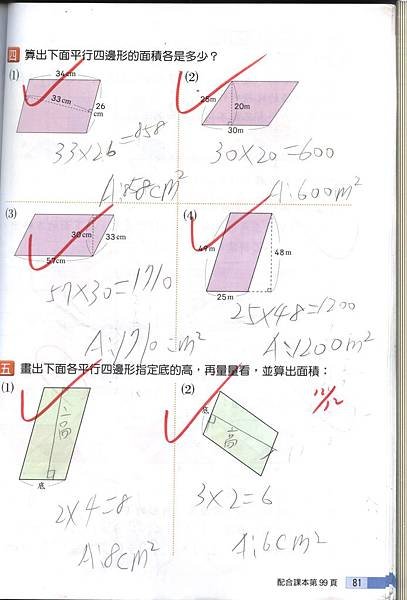 四 算出下面平行四邊形的面積各是多少？
(1)
34cm
33cm
26
cm
33×26=858
A:858cm²
(2)
25m
20m
30m
30×20=600
A:600m²
(3)
30cm
33cm
57cm
57×30=1710
A:1710cm²
(4)
49m
48m
25m
25×48=1200
A:1200m²
五 畫出下面各平行四邊形指定底的高，再量量看，並算出面積：
(1)
高
底
2×4=8
A:8cm²
(2)
底
高
3×2=6
A:6cm²
配合課本第99頁 81